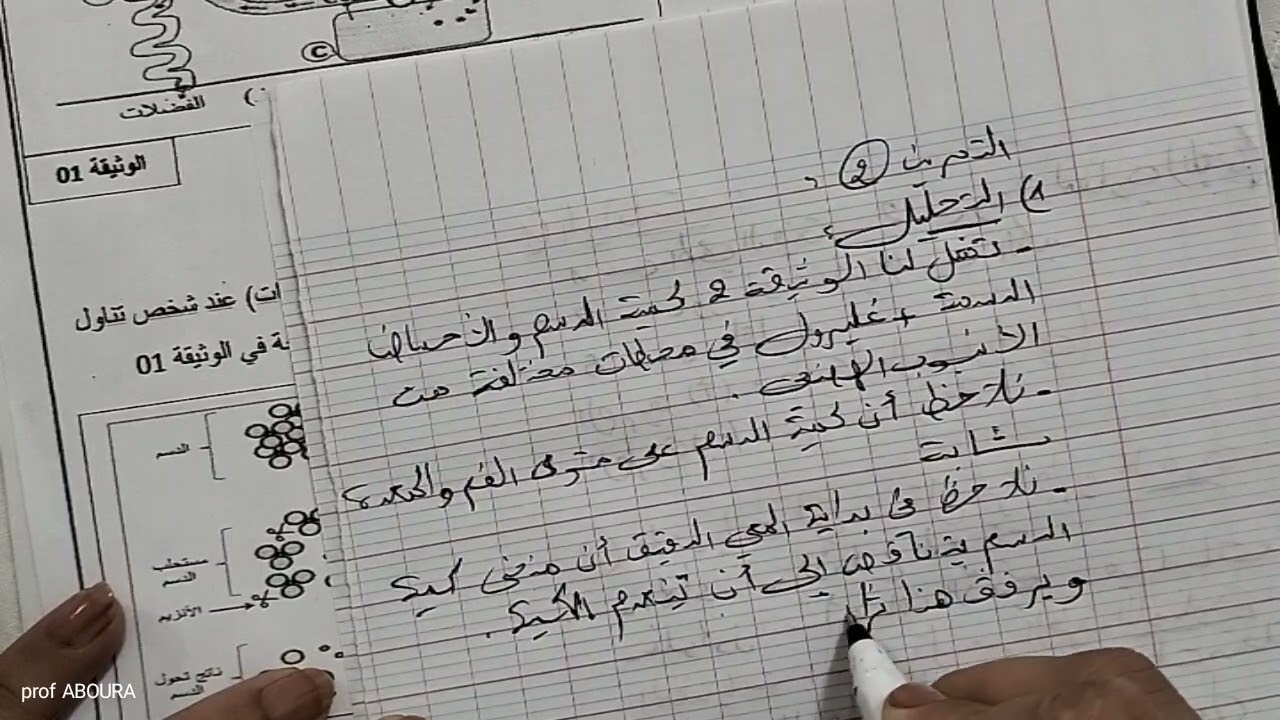 ©
الفضلات
(
الوثيقة 01
ات) عند شخص تناول
ة في الوثيقة 01
الدسم
مستحلب
الدسم
الأنزيم
ناتج تحول
الدسم
التمرين 2 .
1) التحليل:
- تمثل لنا الوثيقة 2 كمية الدسم والأحماض
الدسمة + غليرول في محطات مختلفة من
الأنبوب الهضمي .
- نلاحظ أن كمية الدسم على مستوى الفم والمعدة
ثابتة
- نلاحظ في بداية المعي الدقيق أن منحنى كمية
الدسم يتناقص إلى أن تنعدم الكمية .
ويرفق هنا
prof ABOURA